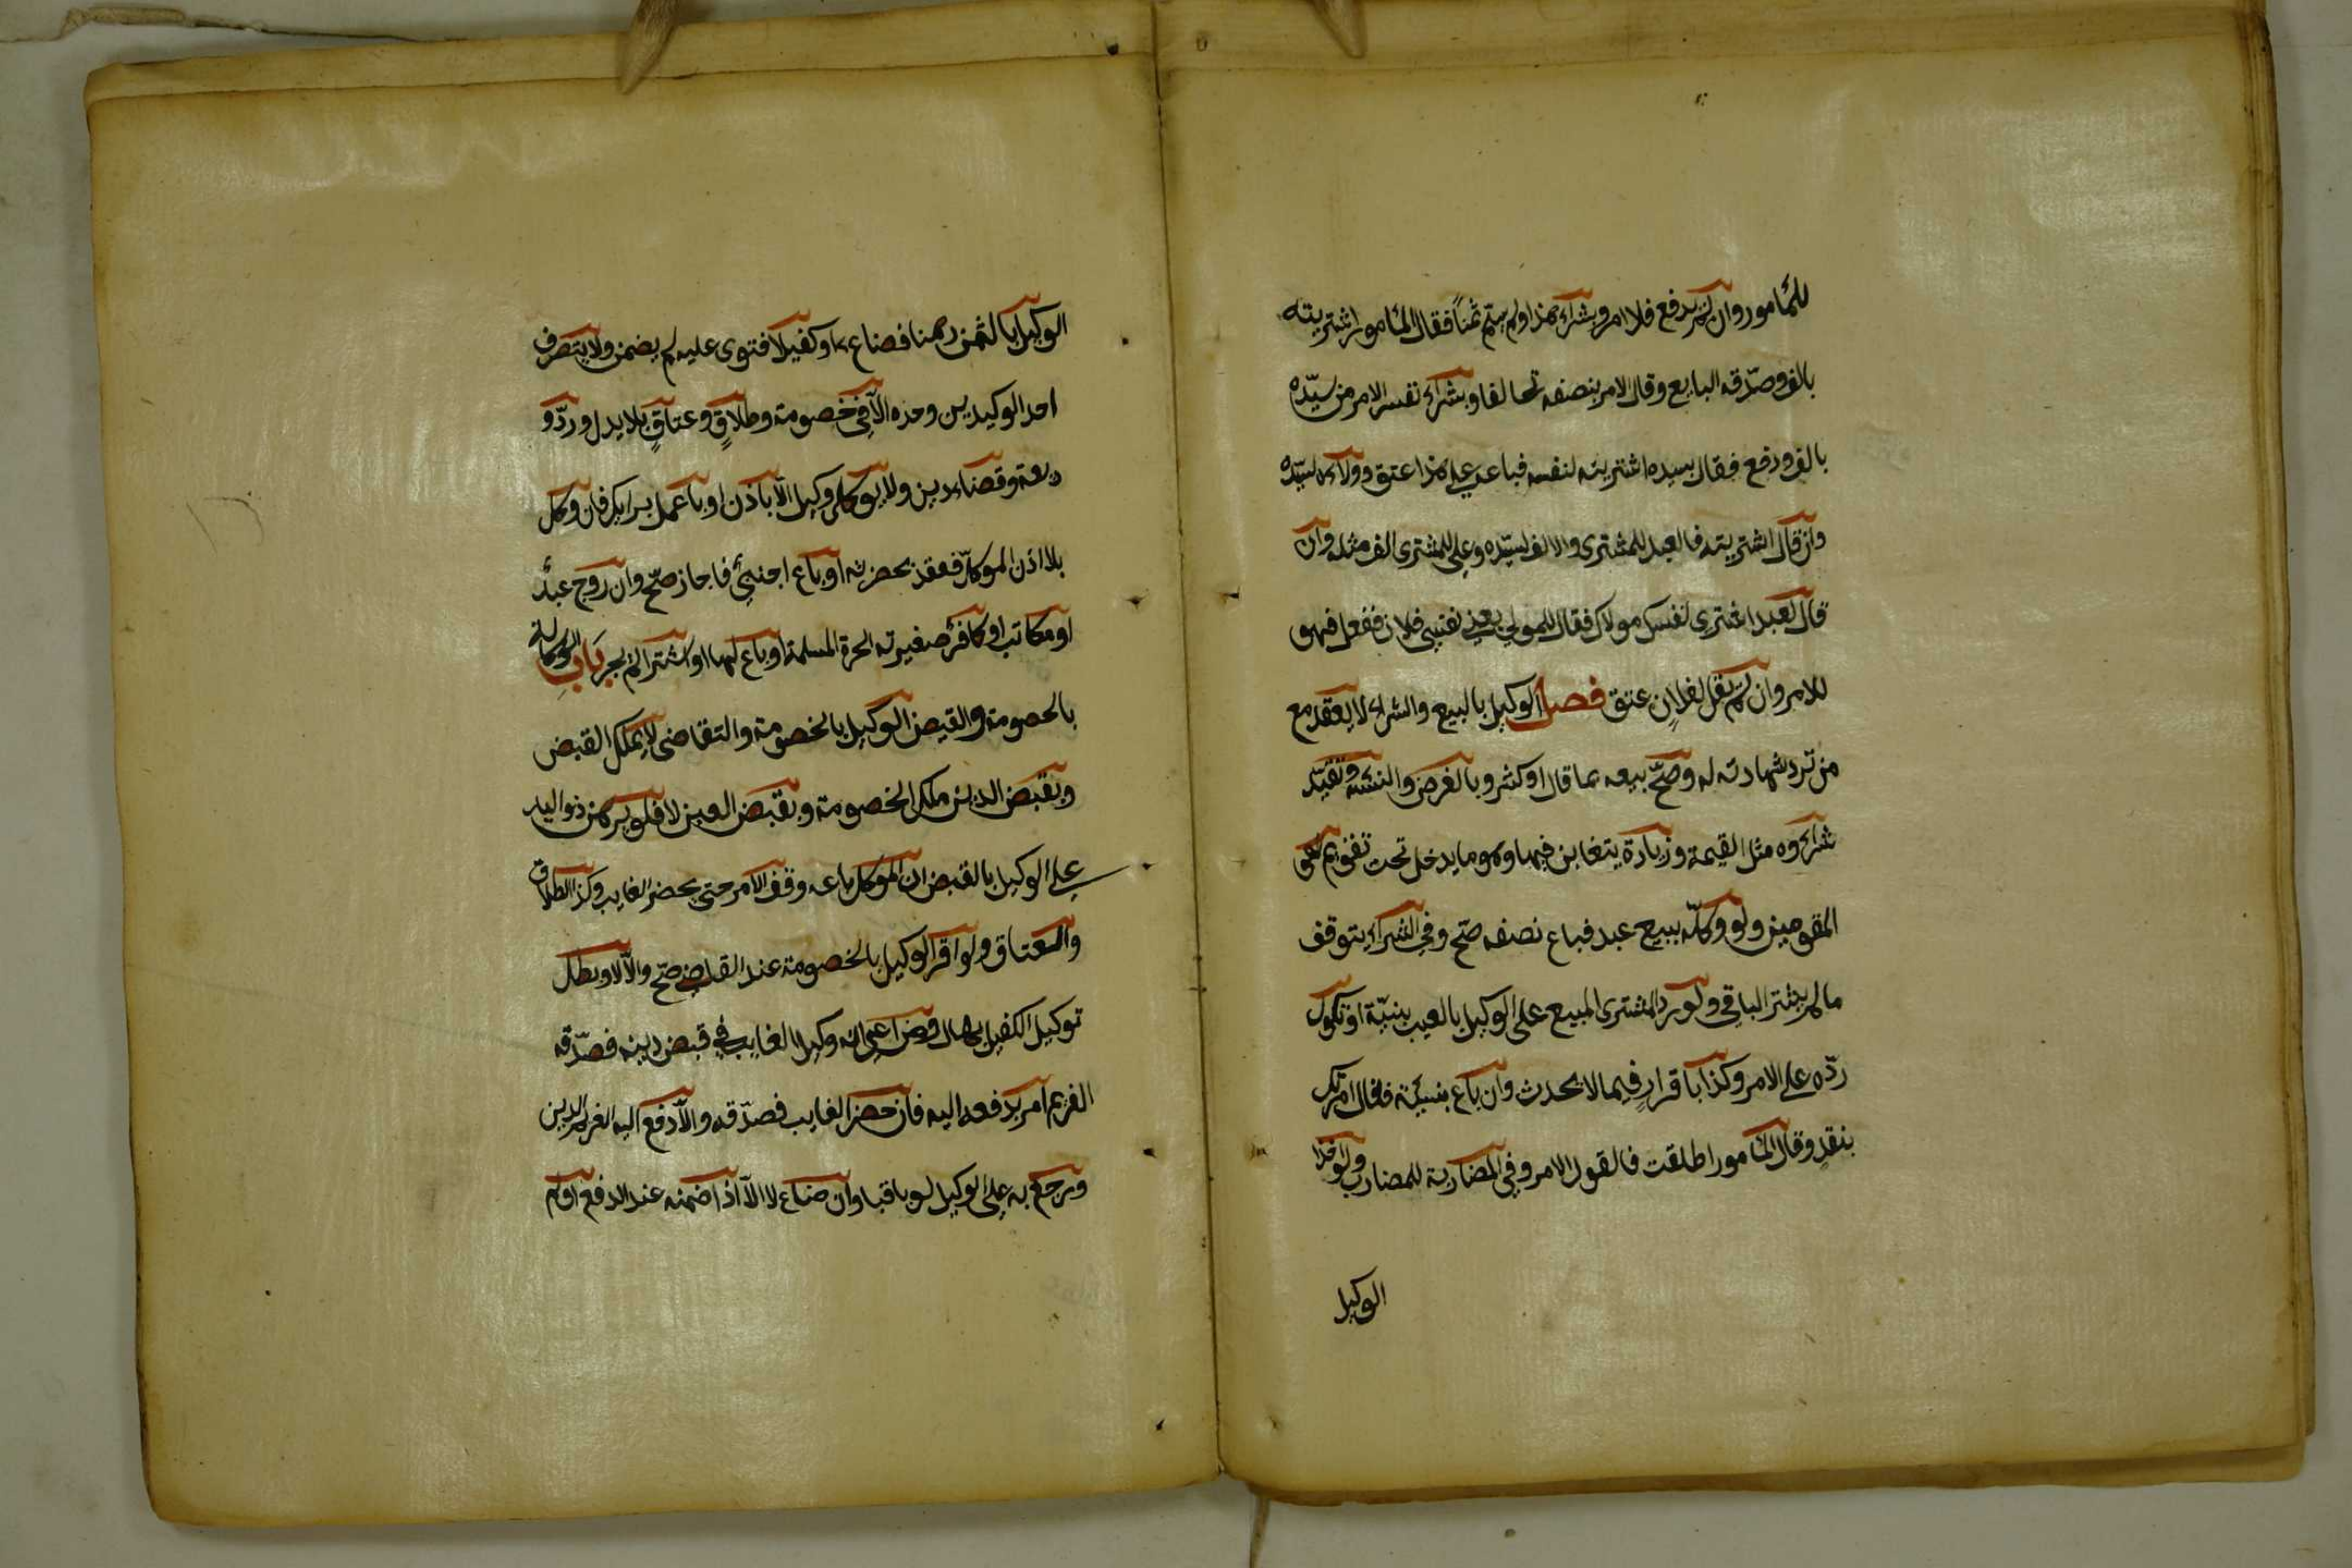 للمأمور وان لم يدفع فلامر وبشراء هذا ولم يسم ثمناً فقال المأمور اشتريته
بالف وصدّقه البايع وقال الامر بنصفه تحالفا وبشراء نفس الامر من سيّده
بالف ودفع فقال بسيده اشتريته لنفسه فباعه على هذا عتق وولاءه لسيّده
وان قال اشتريته فالعبد للمشترى والالف لسيّده وعلى للمشترى الف مثله وان
قال لعبد اشترى لنفسك مولاك فقال للمولى بعنى نفسى فلان ففعل فهو
للامر وان لم يقل لفلان عتق فصل الوكيل بالبيع والشراء لا يعقد مع
من ترد شهادته له وصحّ بيعه بما قال او كثر وبالعرض والنسئه وتقيّد
شراءوه مثل القيمة وزيادة يتغابن فيها وهو ما يدخل تحت تقويم
المقومين ولو وكلّه ببيع عبد فباع نصفه صحّ وفى الشراء يتوقف
ما لم يشتر الباقى ولو رد المشترى المبيع على الوكيل بالعيب ببنيّة او نكول
ردّه على الامر وكذا باقرارٍ فيما لا يحدث وان باع بنسيئة فقال امرتك
بنقدٍ وقال المأمور اطلقت فالقول الامر وفى المضاربة للمضارب ولو اخذ
الوكيل
الوكيل بالثمن رهنا فضاع او كفيلا فتوى عليه لم يضمن ولا يتصرف
احد الوكيلين وحده الّا فى خصومة وطلاقٍ وعتاقٍ بلا بدل وردّ و
ديعة وقضاء دين ولا يوكل وكيل الّا باذن او باعمل برايك فان وكل
بلا اذن الموكلّ فعقد بحضرته او باع اجنبىّ فاجاز صحّ وان زوج عبدٌ
او مكاتب او كافر صغيرته الحرة المسلمة او باع لها او اشترا لم يجز باب الوكالة
بالخصومة والقبض الوكيل بالخصومة والتقاضى لا يملك القبض
وبقبض الدين ملك الخصومة وبقبض العين لا فلو برهن ذو اليد
على الوكيل بالقبض ان الموكل باعه وقف الامر حتى يحضر الغايب وكذا الطلاق
والعتاق ولو اقر الوكيل بالخصومة عند القاضى صحّ والّا لا وبطل
توكيل الكفيل بمال ومن ادعى انه وكيل الغايب فى قبض دينه فصدّقه
الغريم امر بدفعه اليه فان حضر الغايب فصدّقه والّا دفع اليه الغريم الدين
ويرجع به على الوكيل لو باقيا وان ضاع لا الّا اذا ضمنه عند الدفع او لم